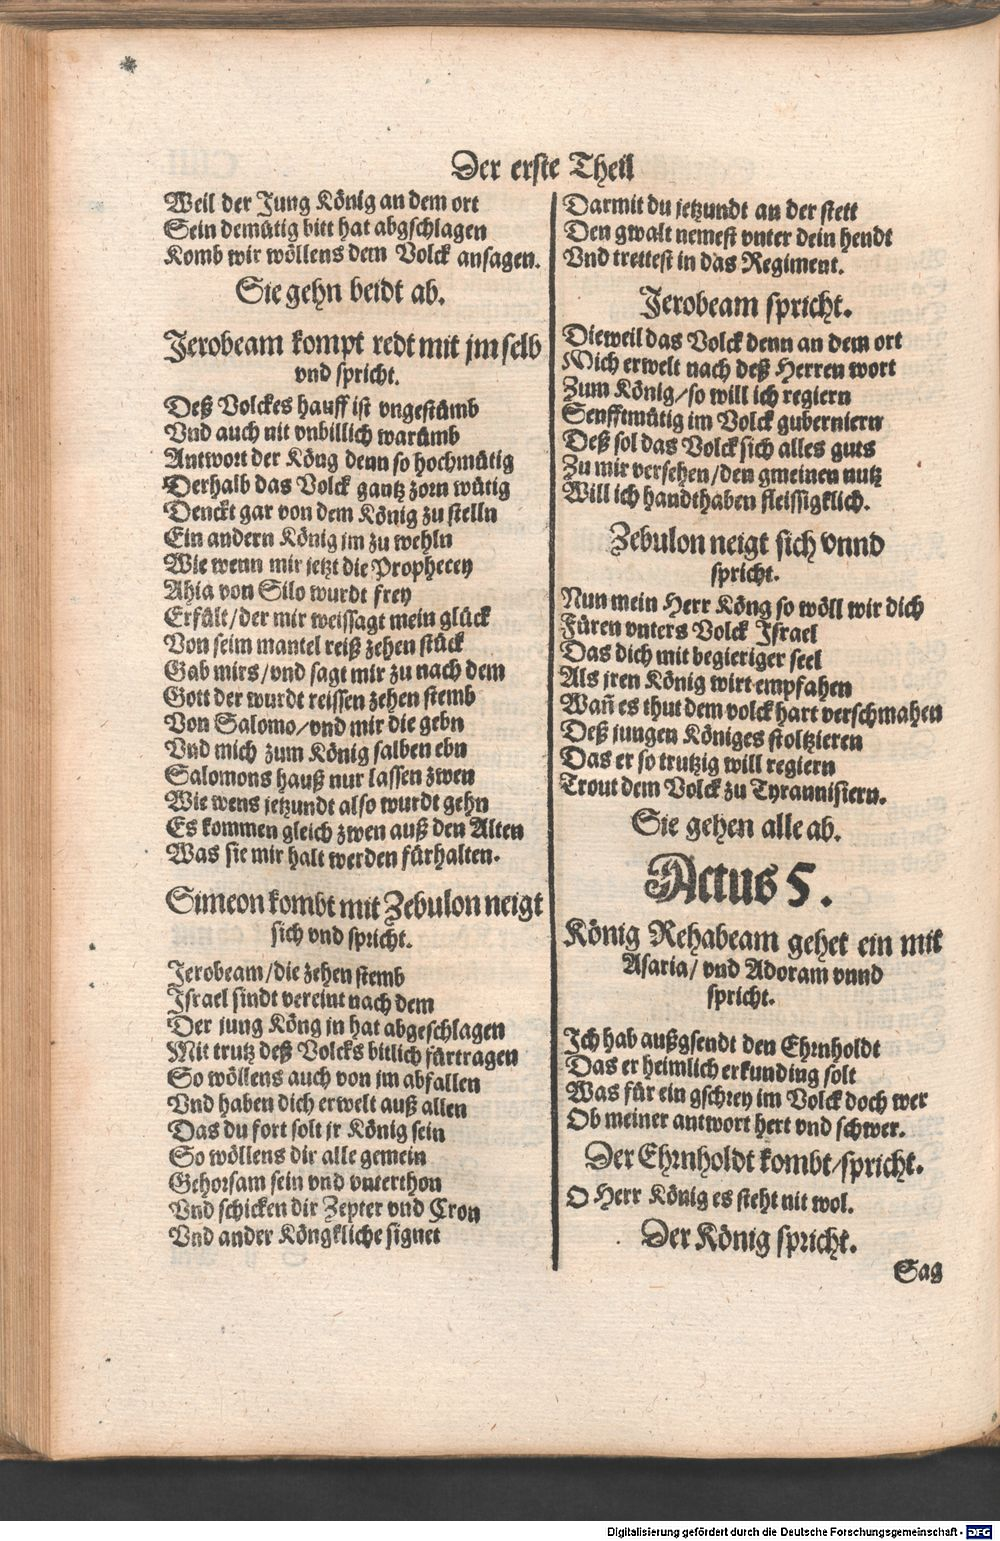 Der erste Theil
Weil der Jung König an dem ort
Sein demütig bitt hat abgschlagen
Komb wir wöllens dem Volck ansagen.
Sie gehn beidt ab.
Jerobeam kompt redt mit jm selb
vnd spricht.
Deß Volckes hauff ist vngestümb
Vnd auch nit vnbillich warümb
Antwort der Köng denn so hochmütig
Derhalb das Volck gantz zorn wütig
Denckt gar von dem König zu stelln
Ein andern König jm zu wehln
Wie wenn mir jetzt die Prophecey
Ahia von Silo wurdt frey
Erfült/der mir weissagt mein glück
Von seim mantel reiß zehen stück
Gab mirs/vnd sagt mir zu nach dem
Gott der wurdt reissen zehen stemb
Von Salomo/vnd mir die gebn
Vnd mich zum König salben ebn
Salomons hauß nur lassen zwen
Wie wens jetzundt also wurdt gehn
Es kommen gleich zwen auß den Alten
Was sie mir halt werden fürhalten.
Simeon kombt mit Zebulon neigt
sich vnd spricht.
Jerobeam/die zehen stemb
Israel sindt vereint nach dem
Der jung Köng jn hat abgeschlagen
Mit trutz deß Volcks bitlich fürtragen
So wöllens auch von jm abfallen
Vnd haben dich erwelt auß allen
Das du fort solt jr König sein
So wöllens dir alle gemein
Gehorsam sein vnd vnterthon
Vnd schicken dir Zepter vnd Cron
Vnd ander Köngkliche signet
Darmit du jetzundt an der stett
Den gwalt nemest vnter dein hendt
Vnd trettest in das Regiment.
Jerobeam spricht.
Dieweil das Volck denn an dem ort
Mich erwelt nach deß Herren wort
Zum König/so will ich regiern
Senfftmütig im Volck guberniern
Deß sol das Volck sich alles guts
Zu mir versehen/den gmeinen nutz
Will ich handthaben fleissigklich.
Zebulon neigt sich vnnd
spricht.
Nun mein Herr Köng so wöll wir dich
Füren vnters Volck Israel
Das dich mit begieriger seel
Als jren König wirt empfahen
Wañ es thut dem volck hart verschmahen
Deß jungen Königes stoltzieren
Das er so trutzig will regiern
Trout dem Volck zu Tyrannisiern.
Sie gehen alle ab.
Actus 5.
König Rehabeam gehet ein mit
Asaria/ vnd Adoram vnnd
spricht.
Ich hab außgsendt den Ehrnholdt
Das er heimlich erkunding solt
Was für ein gschrey im Volck doch wer
Ob meiner antwort hert vnd schwer.
Der Ehrnholdt kombt/spricht.
O Herr König es steht nit wol.
Der König spricht.
Sag
Digitalisierung gefördert durch die Deutsche Forschungsgemeinschaft - DFG